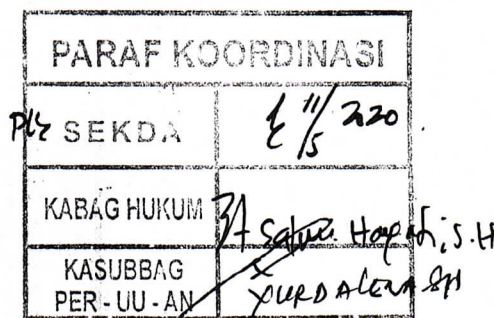 PARAF KOORDINASI
Plt SEKDA 11/5 2020
KABAG HUKUM Hayati, S.H
KASUBBAG
PER - UU - AN YURDALENA SH